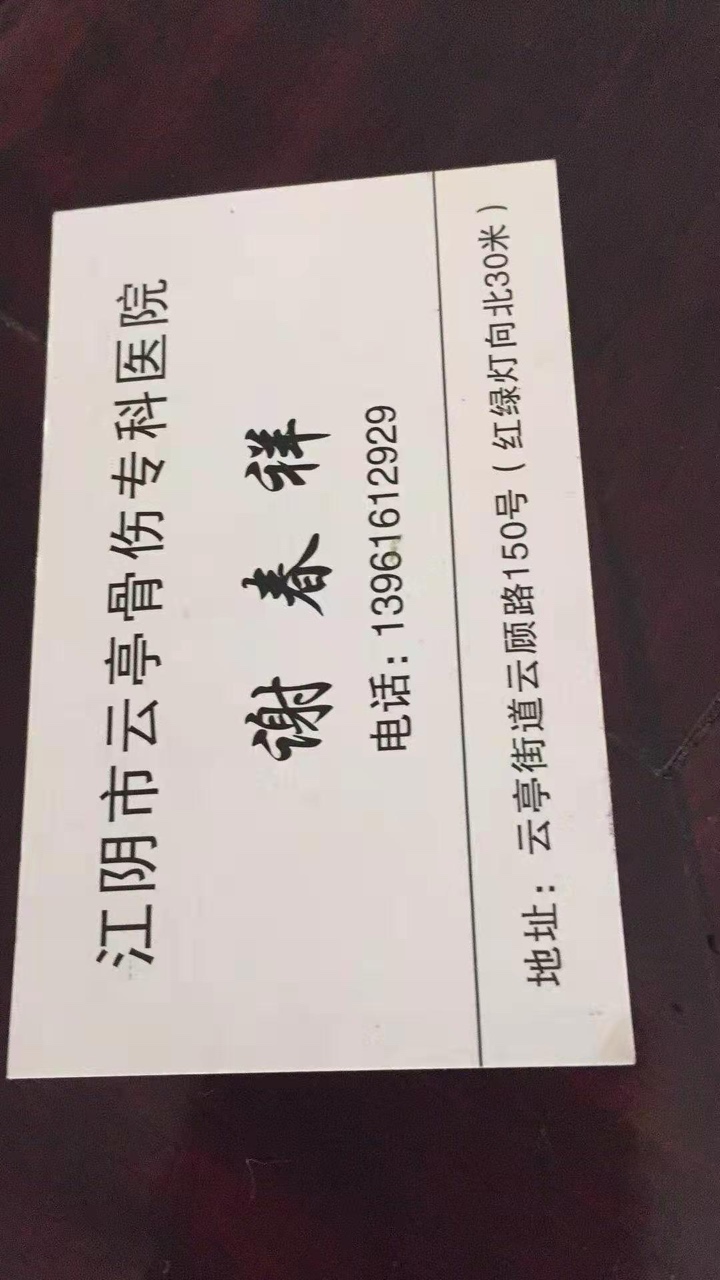 江阴市云亭骨伤专科医院
谢春祥
电话：13961612929
地址：云亭街道云顾路150号（红绿灯向北30米）